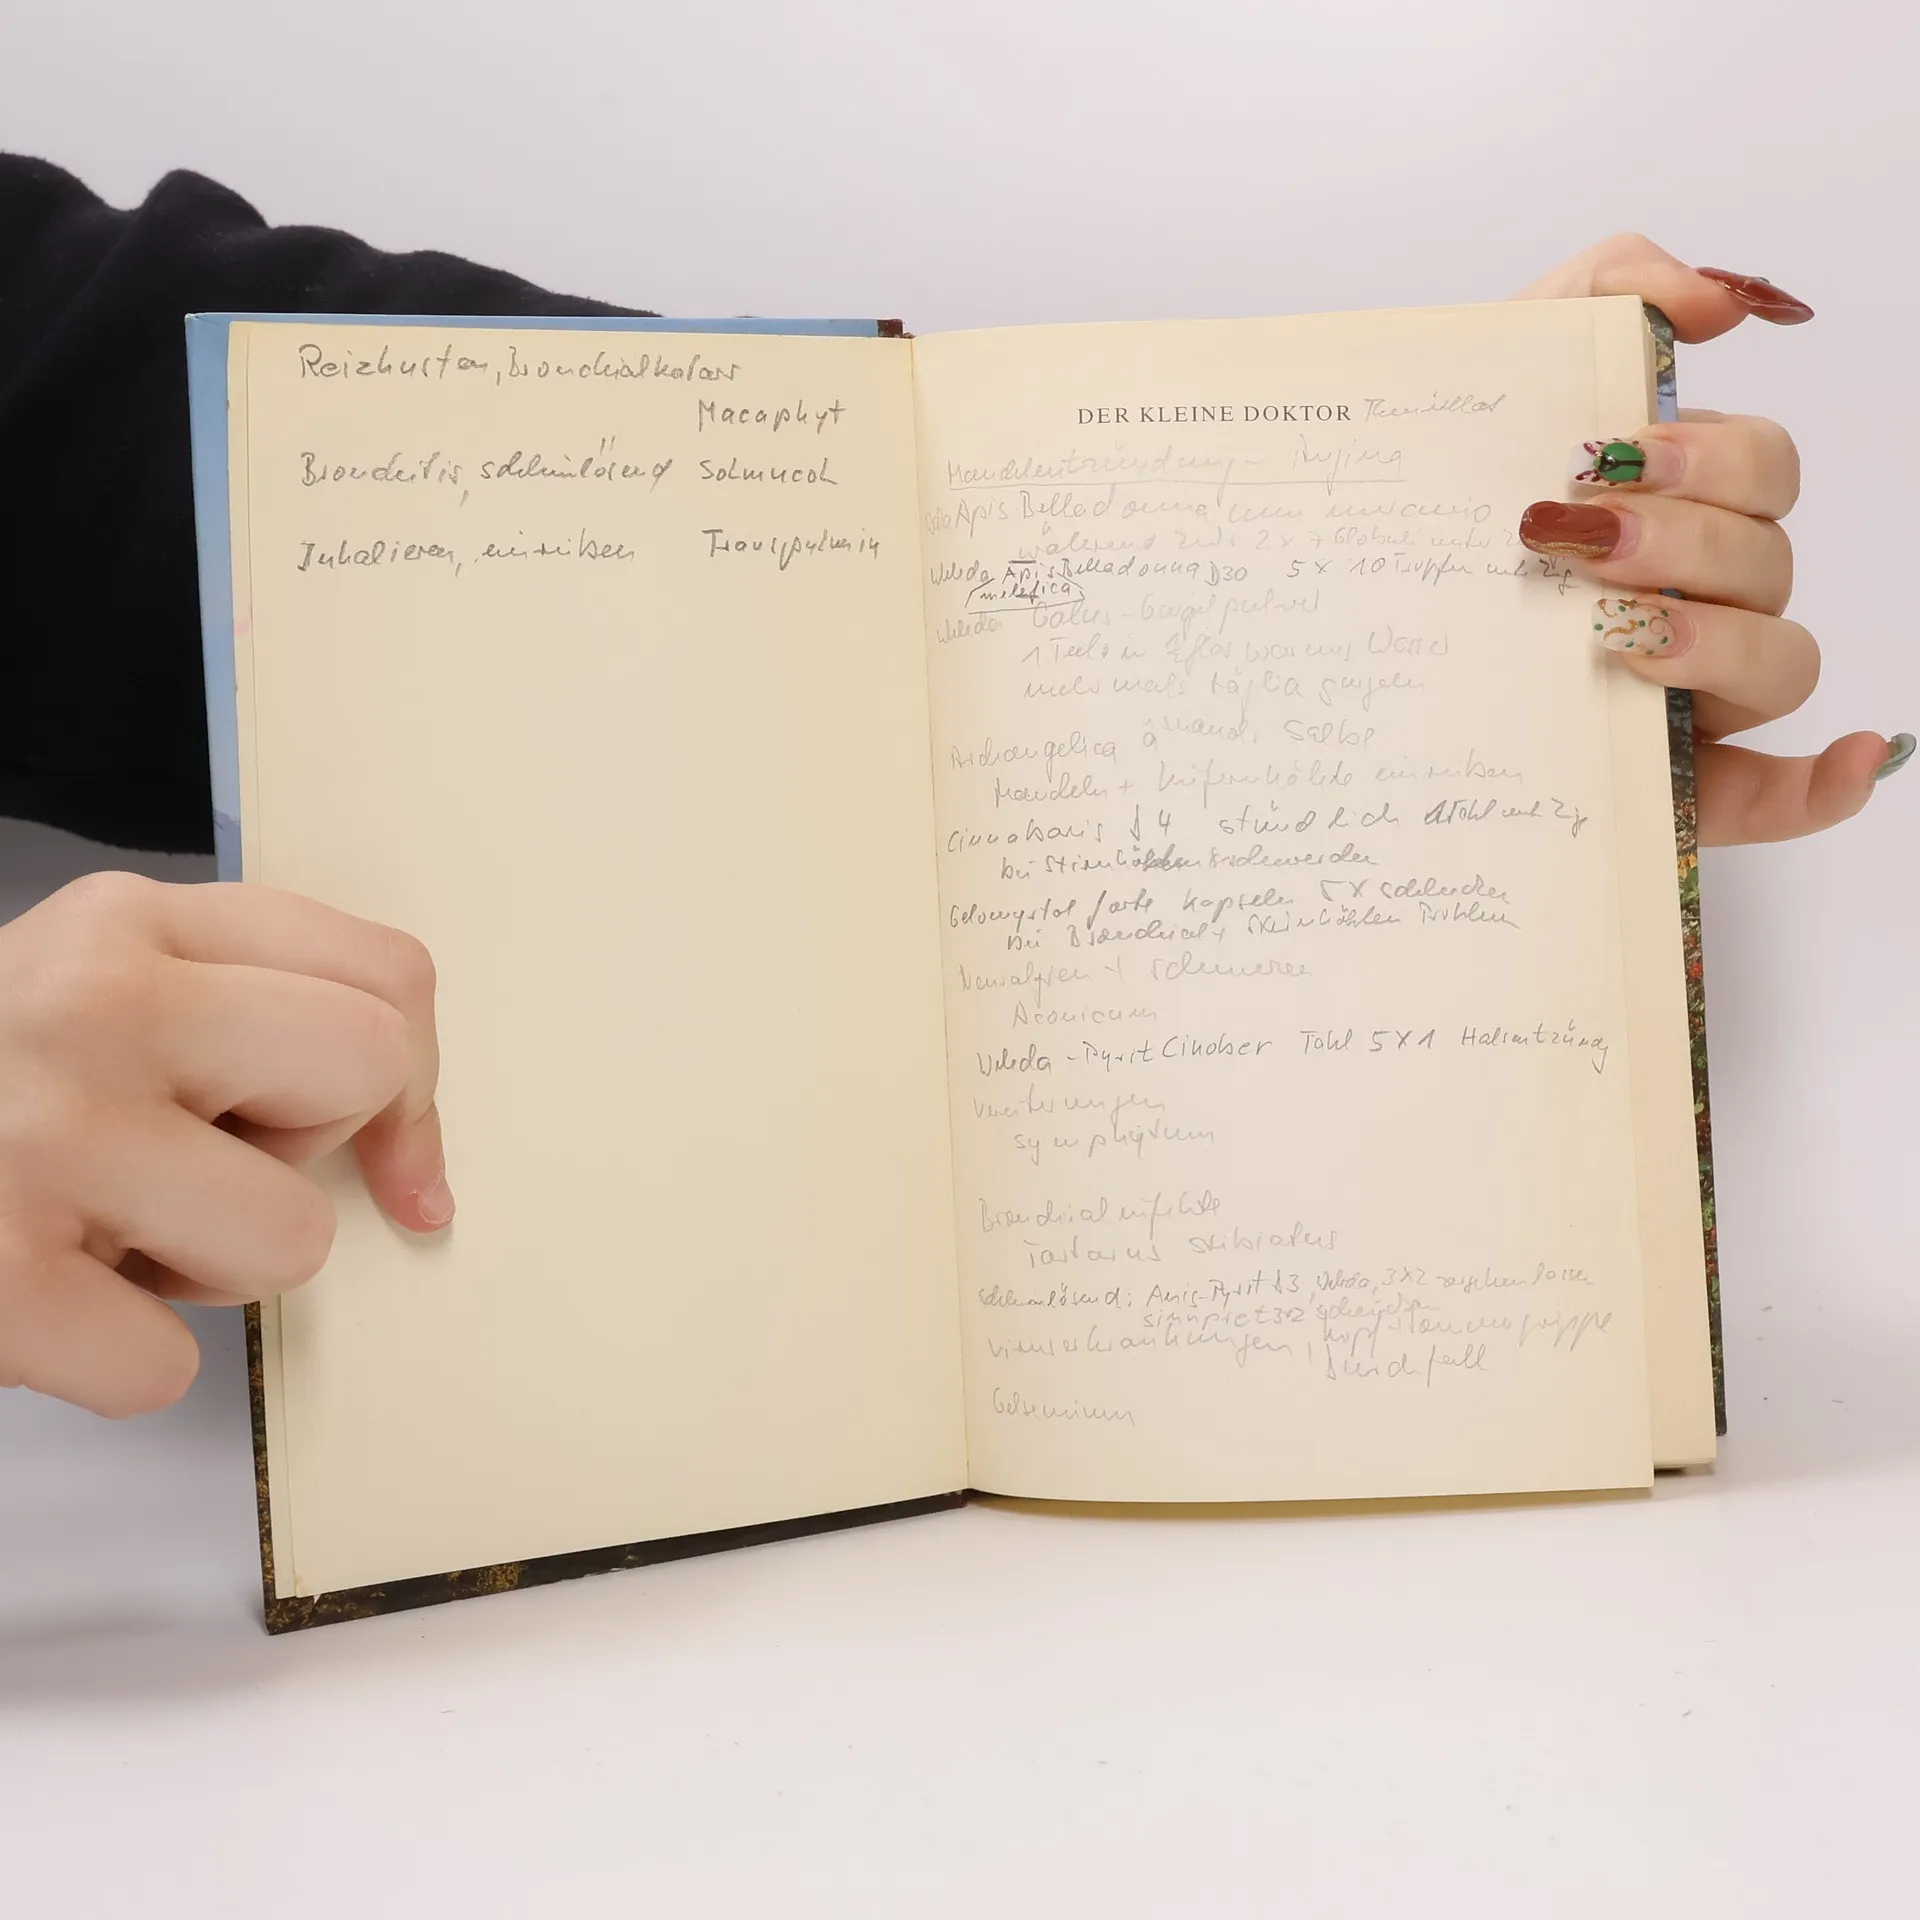 Reizhusten, Bronchialkatarr
Macaphyt
Bronchitis, schleimlösend Solmucol
Inhalieren, einreiben Transpulmin
DER KLEINE DOKTOR
Mandelentzündung - Angina
Apis Belladonna cum mercurio
während 2 x 7 Globuli unter
Weleda Apis Belladonna D30 5 x 10 Tropfen unt. Zg
melefica
Weleda Gurgelpulver
1 Teel. in Glas warmes Wasser
mehrmals täglich gurgeln
Archangelica Salbe
Mandeln + Kieferhöhle einreiben
Cinnabaris D 4 stündlich 1 Tabl unt Zge
bei Stirnhöhlen Beschwerden
Gelomyrtol forte Kapseln 5 X schlucken
bei Bronchial + Stirnhöhlen Problem
Neuralgien + schmerzen
Aconicum
Weleda - Pyrit Cinober Tabl 5 X 1 Halsentzündg
Vereiterungen
symphytum
Bronchialinfekte
Tartarus stibiatus
schleimlösend: Anis-Pyrit D3, Weleda, 3x2 zergehen lassen
sinupret 3x2
Viruserkrankungen, Kopf + Sommergrippe
Durchfall
Gelsemium